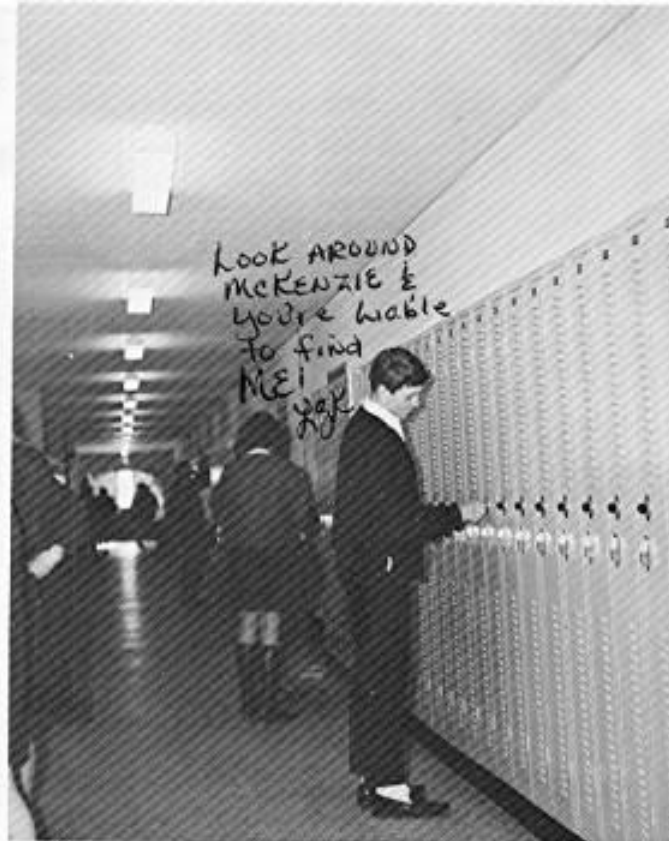 LOOK AROUND
McKENZIE &
you're liable
to find
ME!